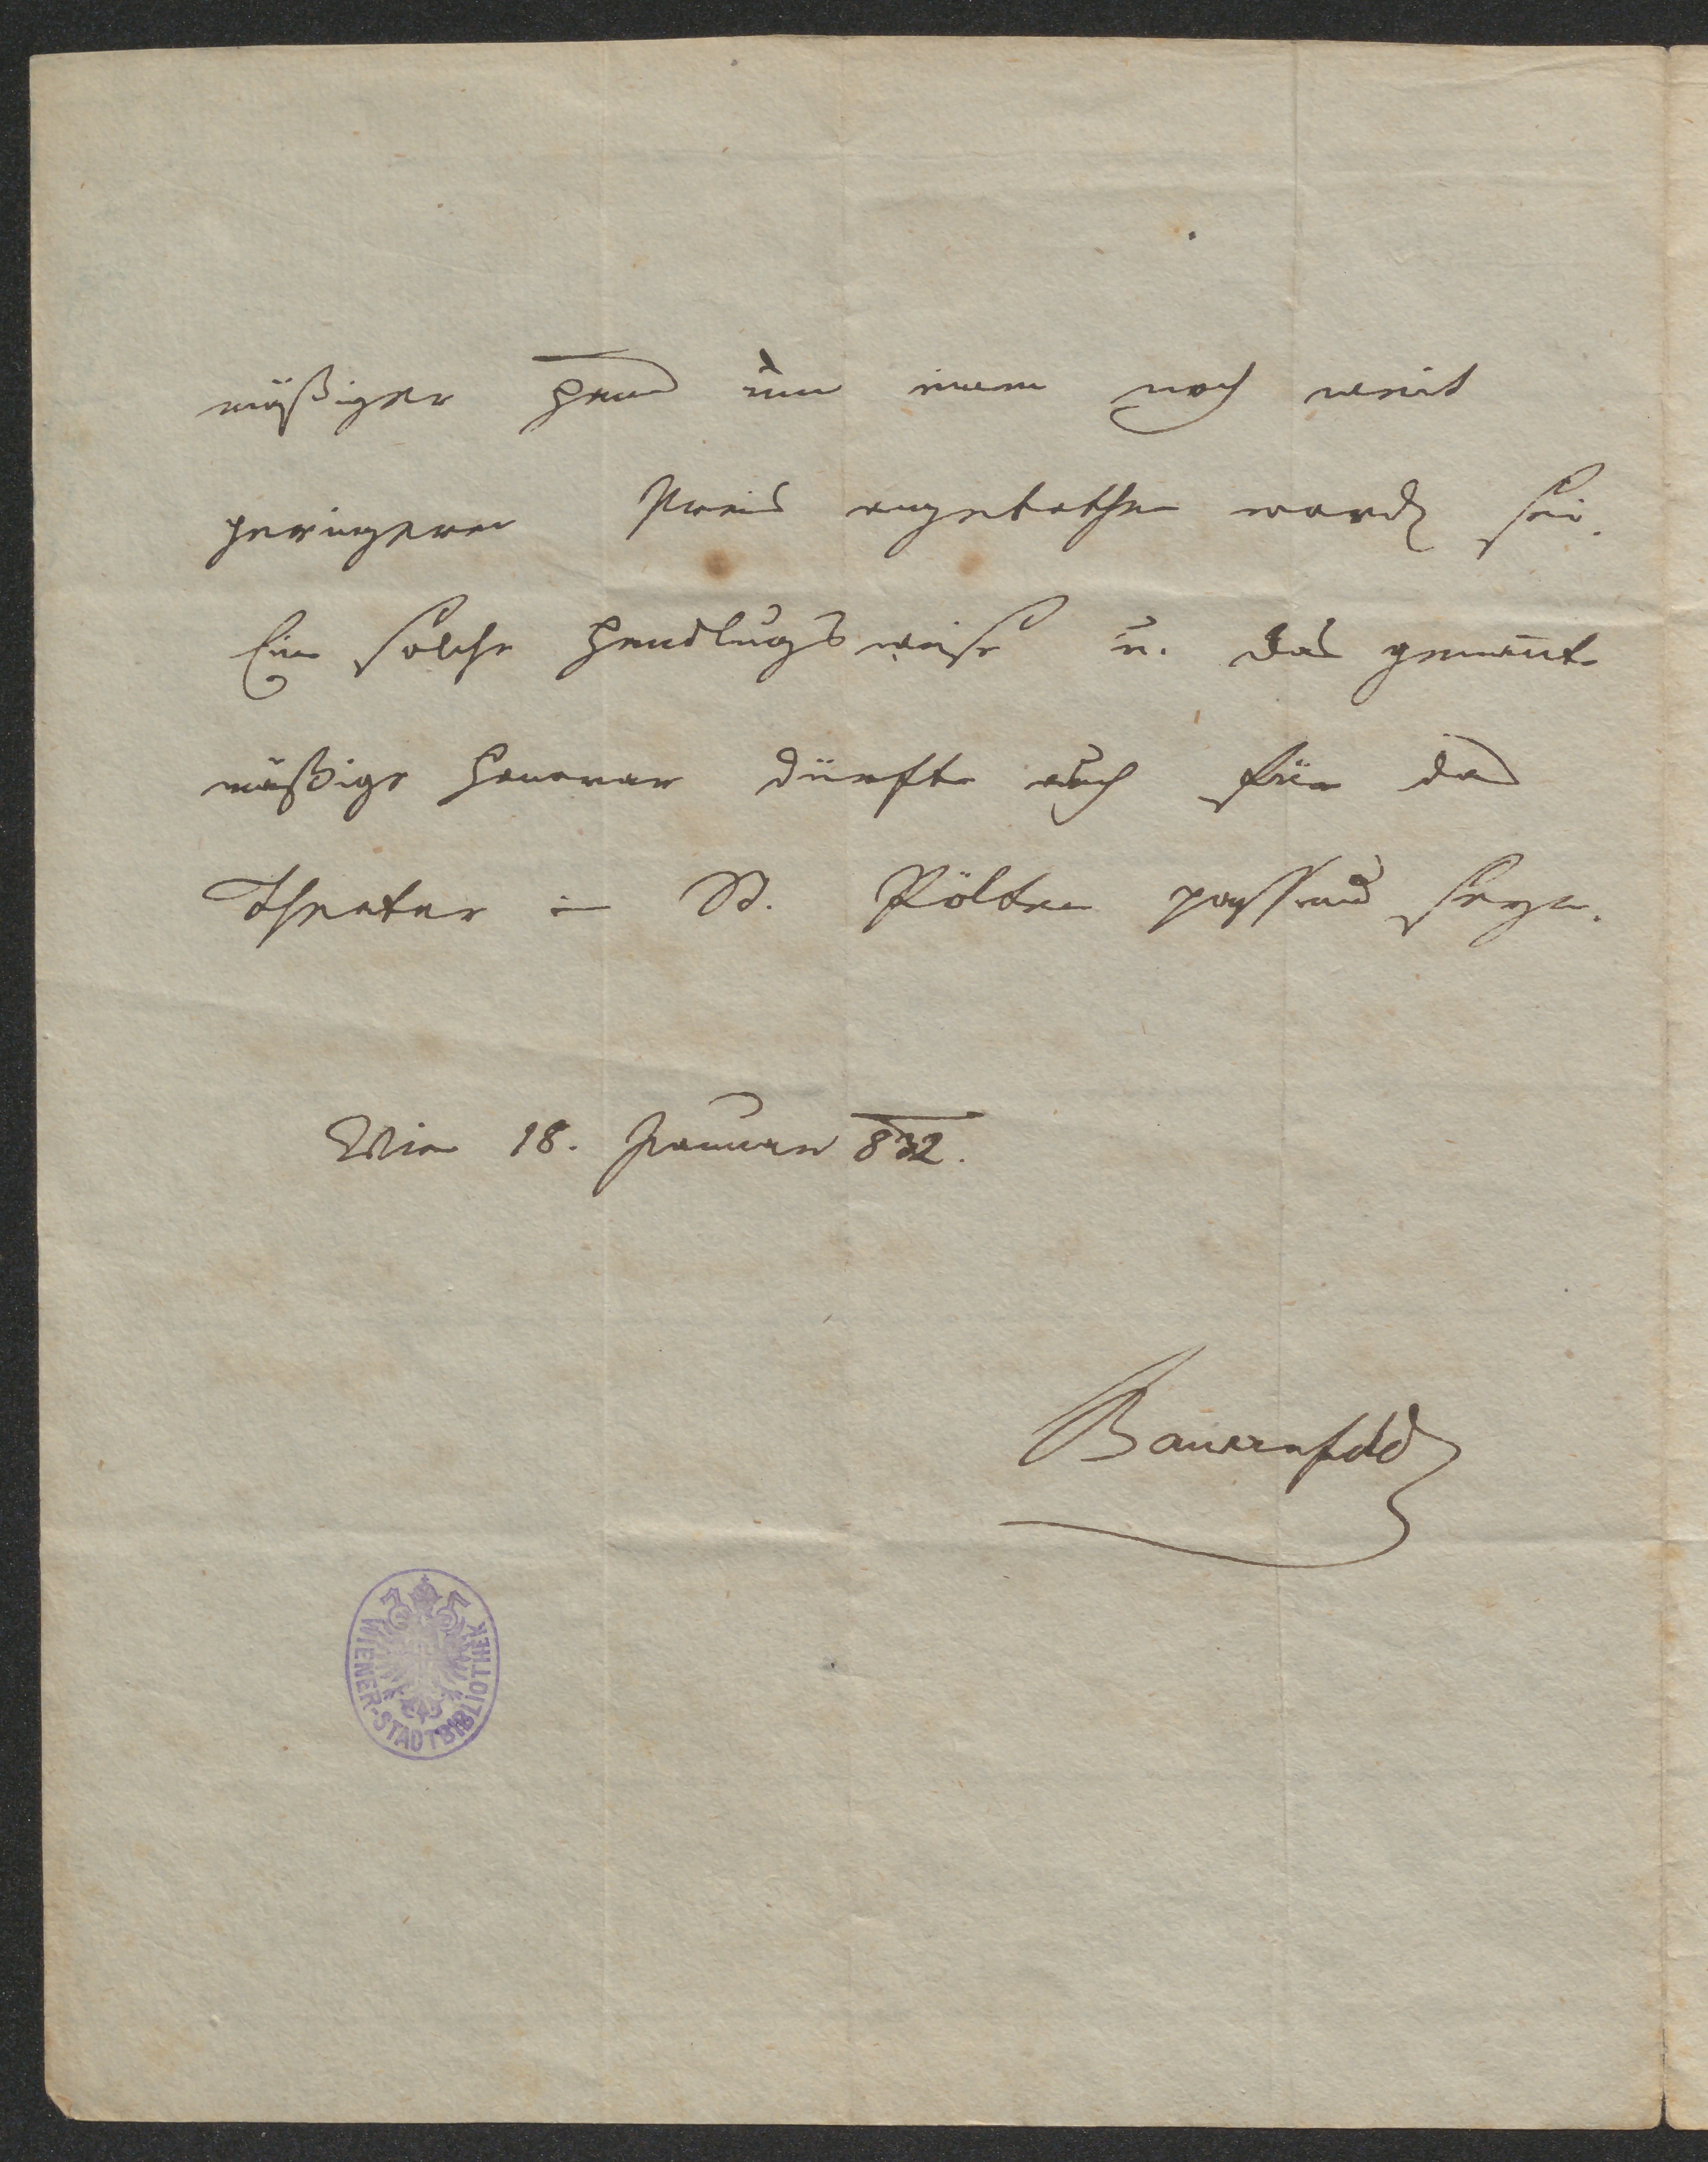 mäßiger Hand um einen noch weit
geringeren Preis angebothen word sei.
Eine solche Handlugsweise u. das genante
mäßige Honorar dürfte auch für das
Theater in St. Pölten passend seyn.
Wien 18. Januar 832.
Bauernfeld
WIENER-STADTBIBLIOTHEK